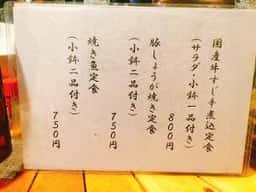 国産牛すじ煮込定食
(サラダ・小鉢一品付き)
800円
豚しょうが焼き定食
(小鉢二品付き)
750円
焼き魚定食
(小鉢二品付き)
750円